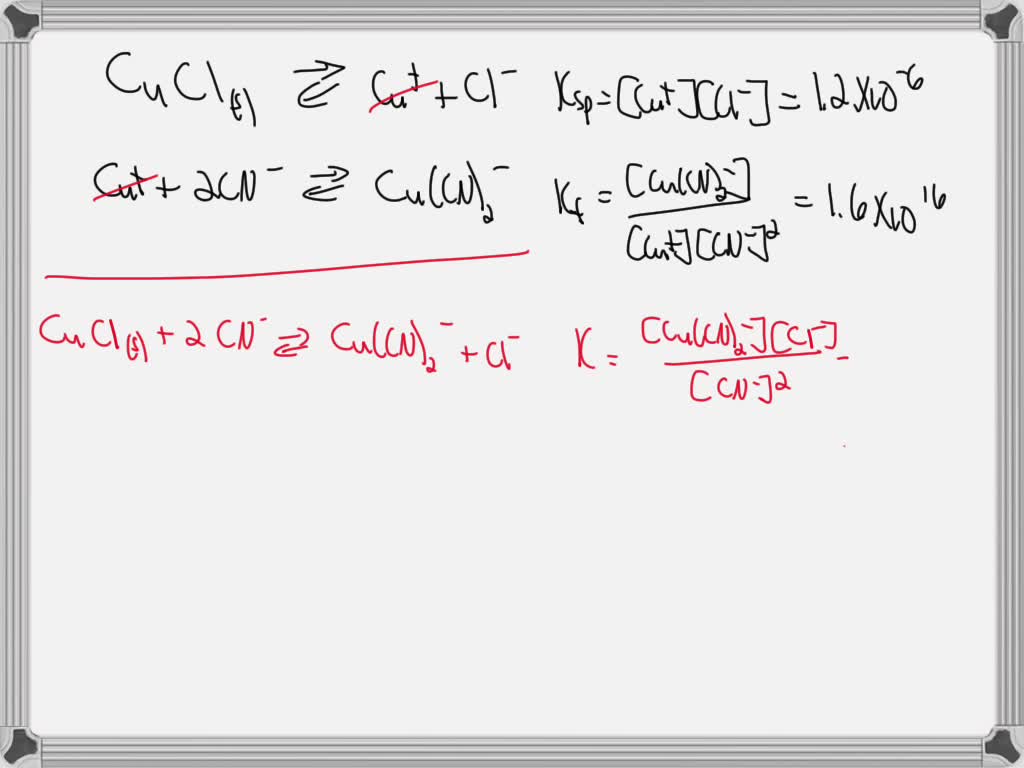 CuCl(s) ⇌ Cu⁺ + Cl⁻ Ksp = [Cu⁺][Cl⁻] = 1.2×10⁻⁶
Cu⁺ + 2CN⁻ ⇌ Cu(CN)₂⁻ Kf = [Cu(CN)₂⁻] / [Cu⁺][CN⁻]² = 1.6×10¹⁶
CuCl(s) + 2 CN⁻ ⇌ Cu(CN)₂⁻ + Cl⁻ K = [Cu(CN)₂⁻][Cl⁻] / [CN⁻]² -